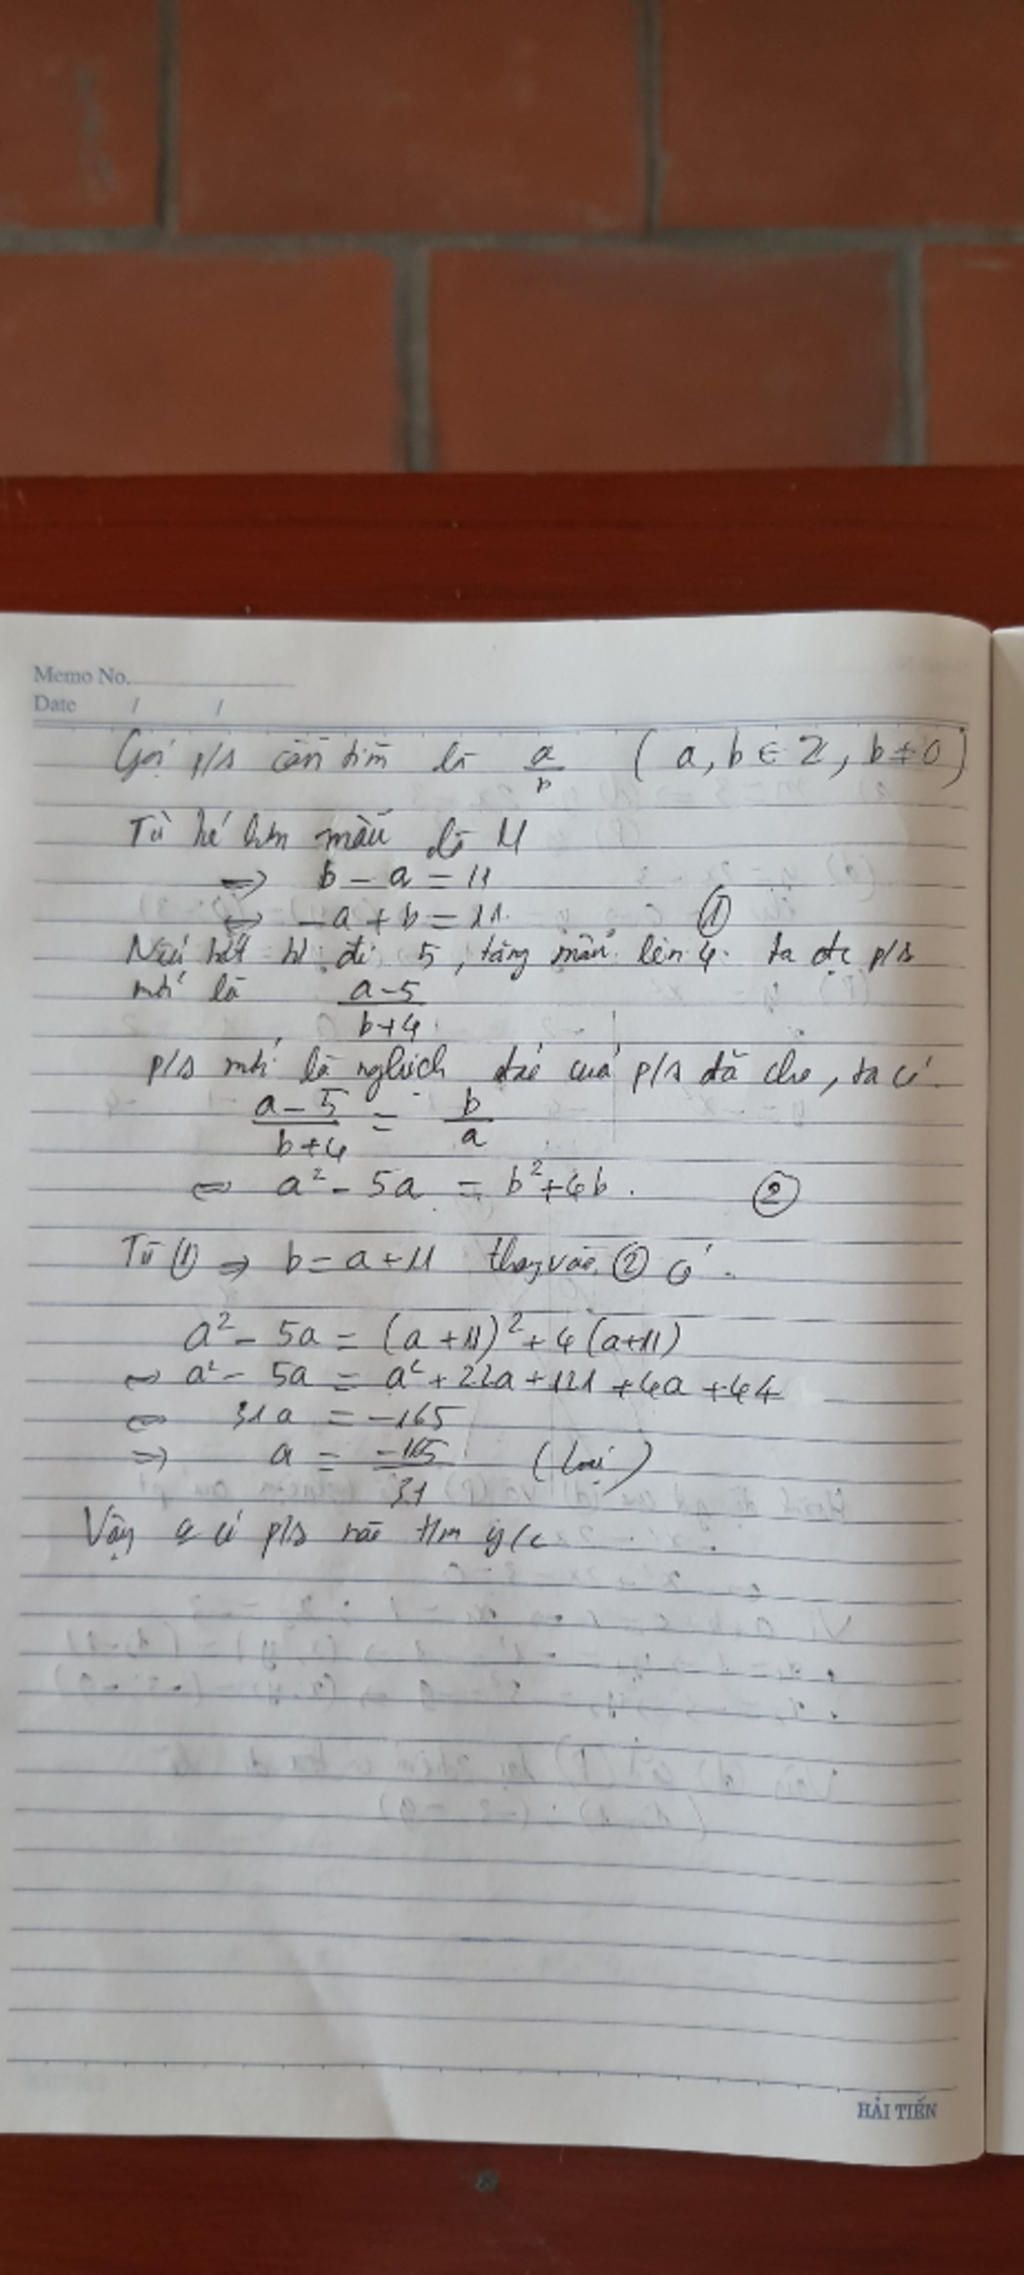 Memo No.
Date / /
Gọi p/s cần tìm là a/b (a, b ∈ Z, b ≠ 0)
Tử bé hơn mẫu là 11
=> b - a = 11
<=> -a + b = 11. (1)
Nếu bớt tử đi 5, tăng mẫu lên 4 ta đc p/s
mới là (a-5)/(b+4)
p/s mới là nghịch đảo của p/s đã cho, ta có
(a-5)/(b+4) = b/a
<=> a² - 5a = b² + 4b. (2)
Từ (1) => b = a + 11 thay vào (2) có
a² - 5a = (a + 11)² + 4(a+11)
<=> a² - 5a = a² + 22a + 121 + 4a + 44
<=> 31a = -165
=> a = -165/31 (loại)
Vậy có p/s nào t/m y/c
HẢI TIẾN